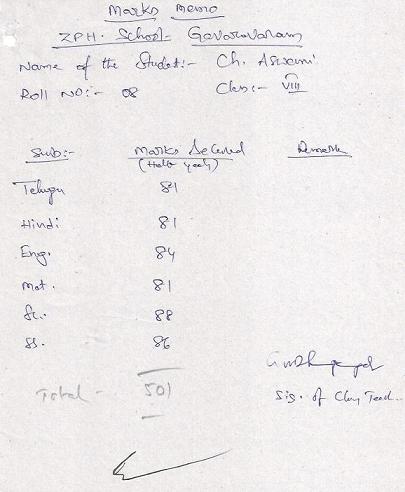 Marks Memo
ZPH. School- Gavaravaram
Name of the Student:- Ch. Aswani
Roll NO:- 08 Class:- VIII
Sub:- Marks Secured Remark
(Half yearly)
Telugu 81
Hindi 81
Eng. 84
Mat. 81
Sc. 88
SS. 86
Total - 501
Sig. of Class Teach..